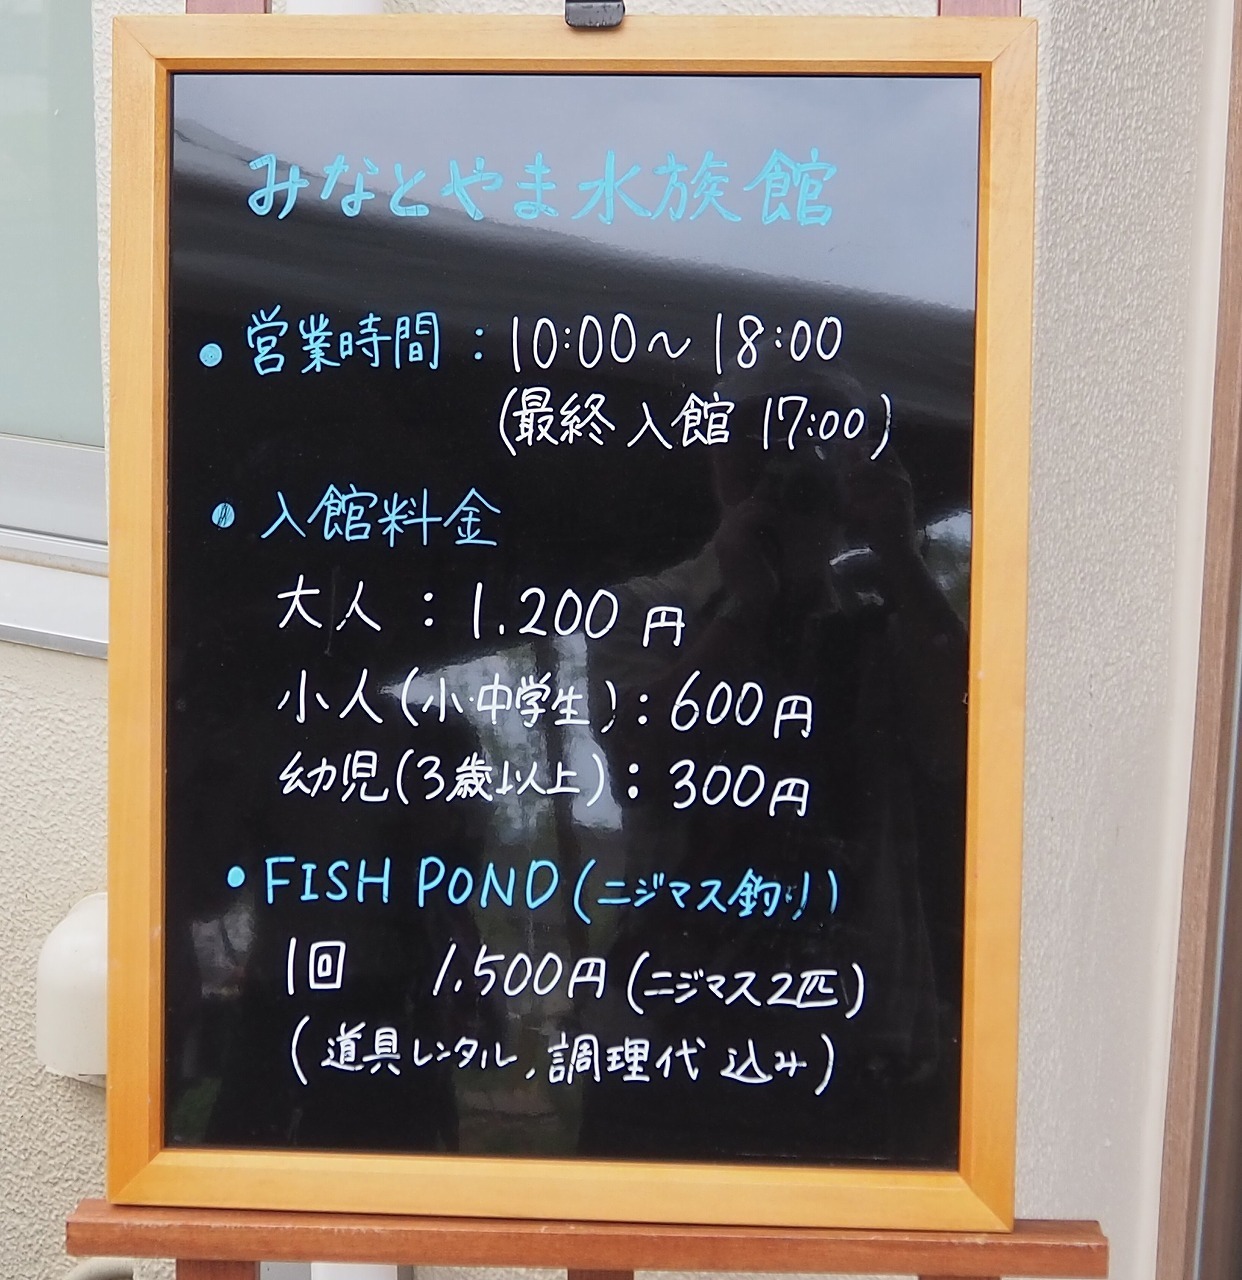 みなとやま水族館
• 営業時間 : 10:00〜18:00
(最終入館 17:00)
• 入館料金
大人 : 1.200円
小人(小・中学生) : 600円
幼児(3歳以上) : 300円
• FISH POND (ニジマス釣り)
1回 1.500円 (ニジマス2匹)
(道具レンタル, 調理代込み)